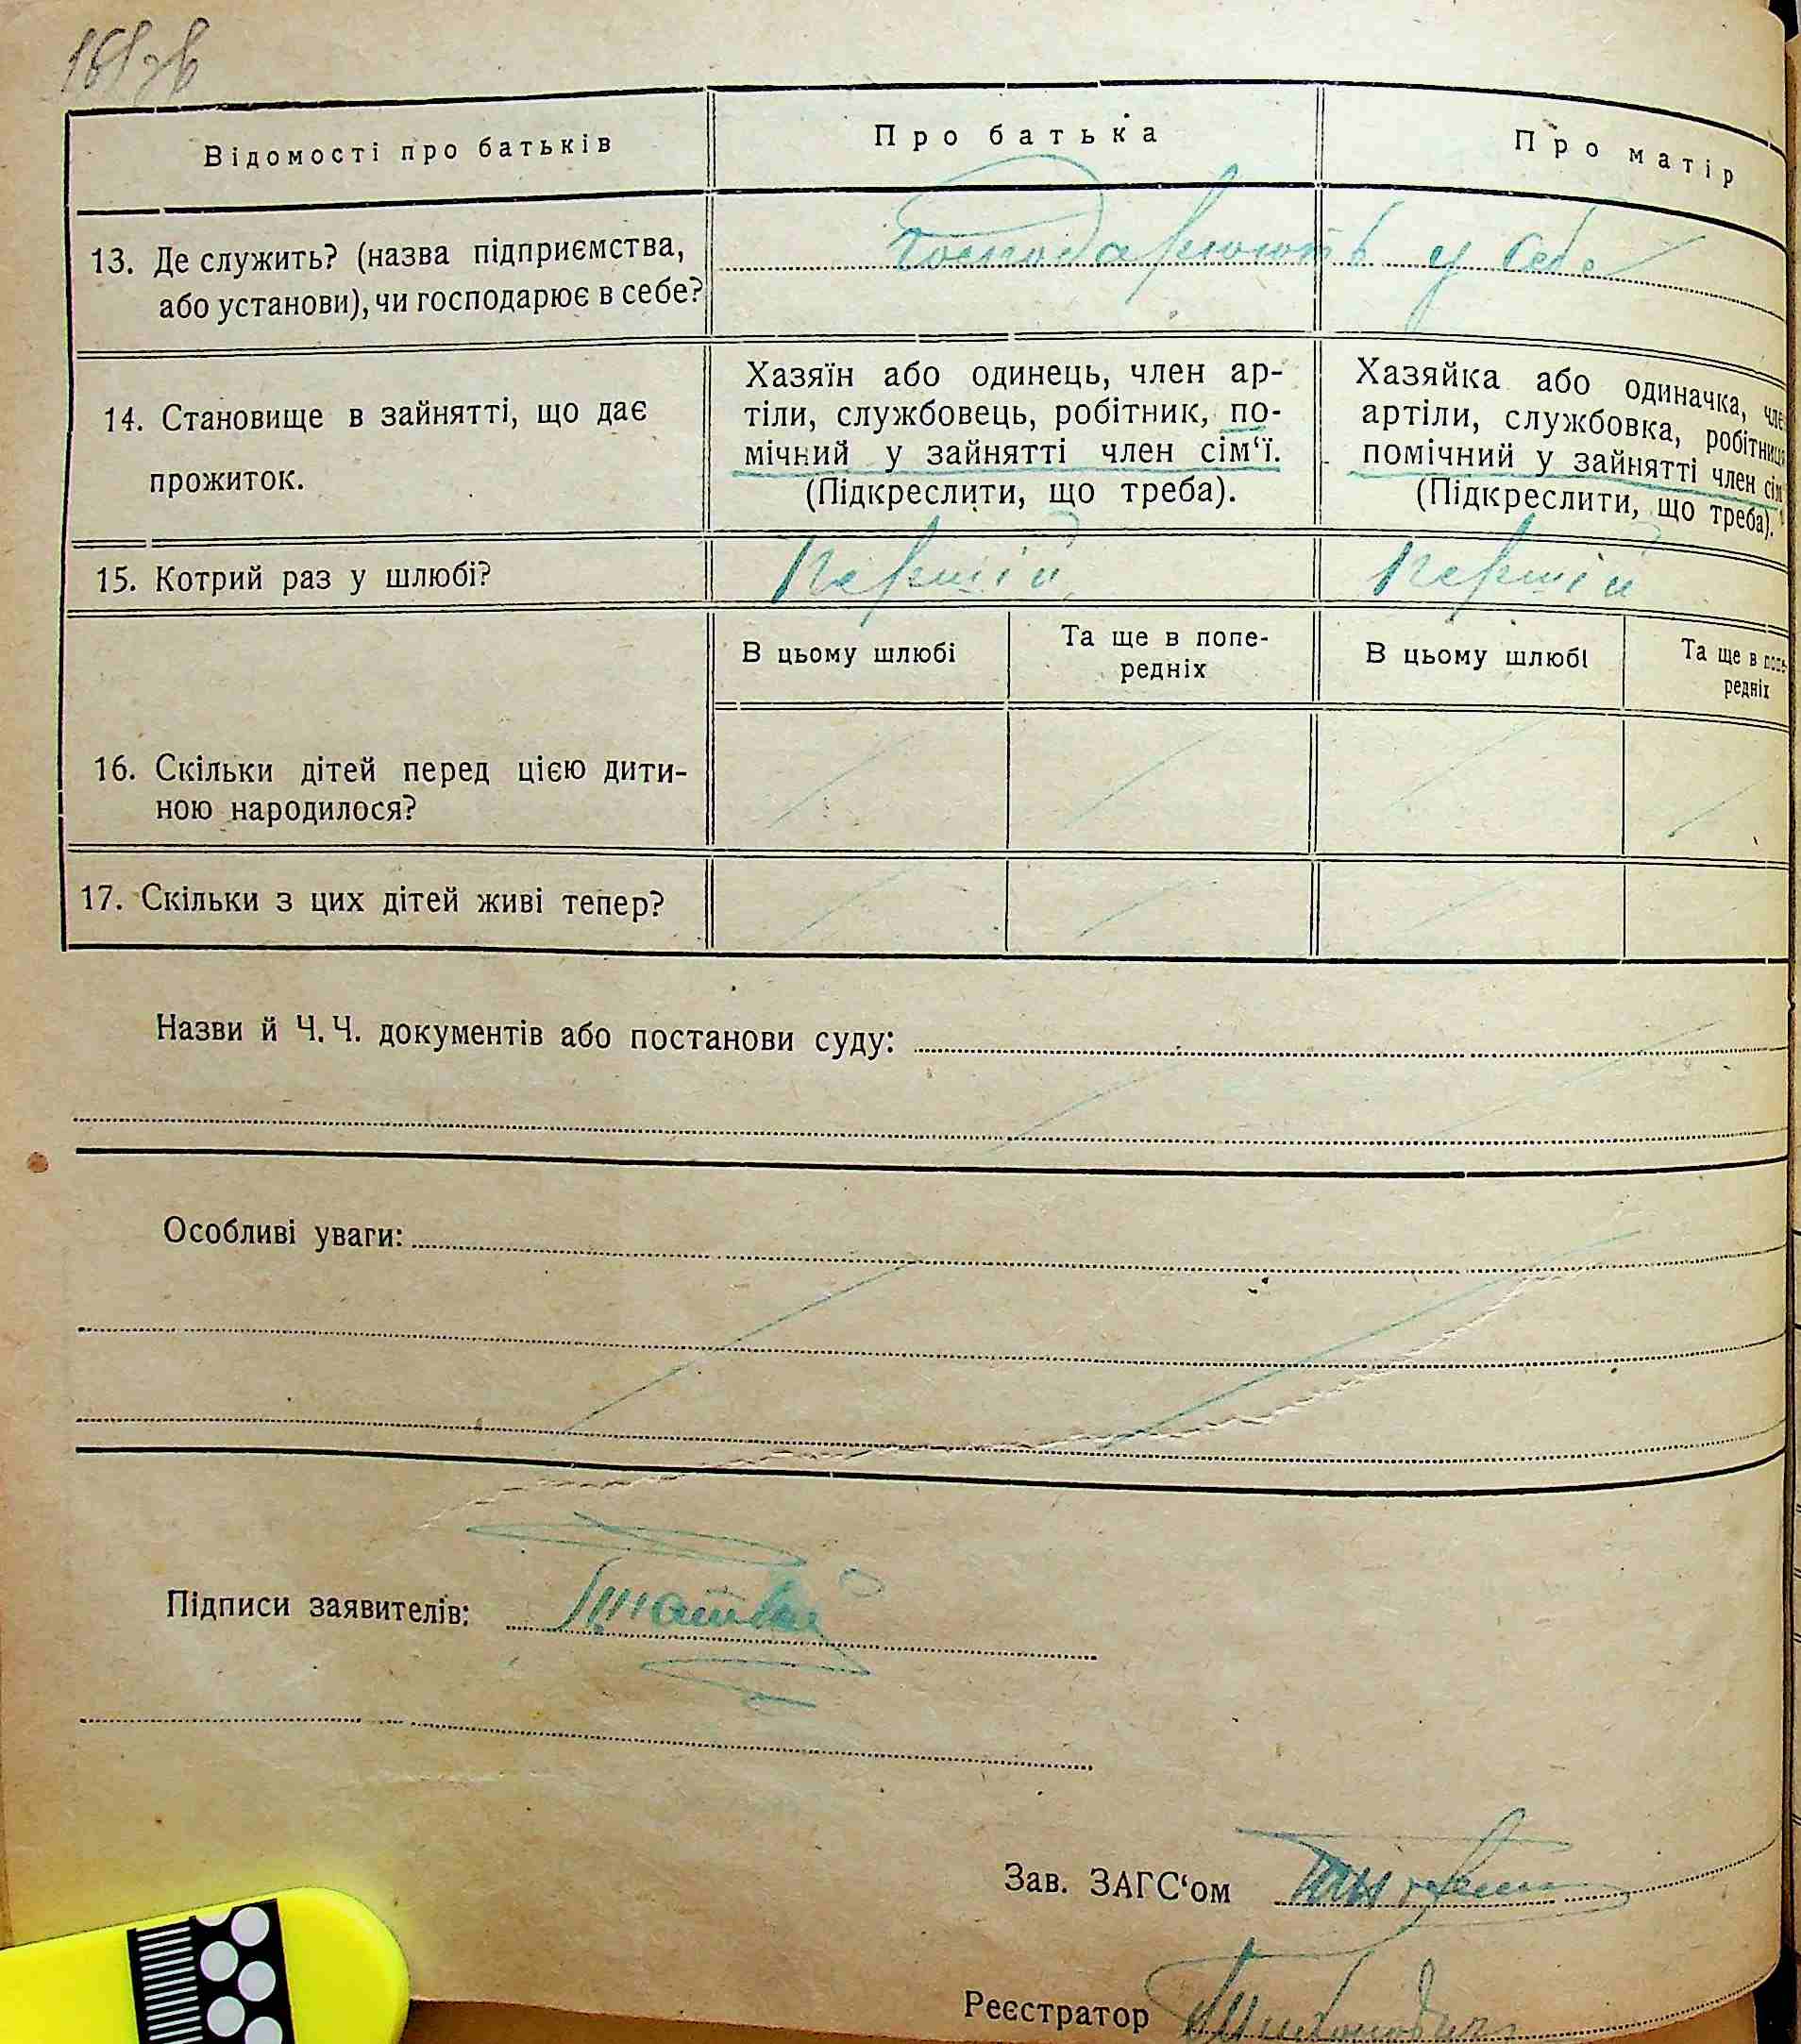 Відомості про батьків
Про батька
Про матір
13. Де служить? (назва підприємства,
або установи), чи господарює в себе?
Господарюють у себе
14. Становище в зайнятті, що дає
прожиток.
Хазяїн або одинець, член ар-
тіли, службовець, робітник, по-
мічний у зайнятті член сім‘ї.
(Підкреслити, що треба).
Хазяйка або одиначка, чле
артіли, службовка, робітниця
помічний у зайнятті член сім
(Підкреслити, що треба).
15. Котрий раз у шлюбі?
Перший
Перший
В цьому шлюбі
Та ще в попе-
редніх
В цьому шлюбі
Та ще в попе-
редніх
16. Скільки дітей перед цією дити-
ною народилося?
17. Скільки з цих дітей живі тепер?
Назви й Ч. Ч. документів або постанови суду:
Особливі уваги:
Підписи заявителів:
Зав. ЗАГС‘ом
Реєстратор